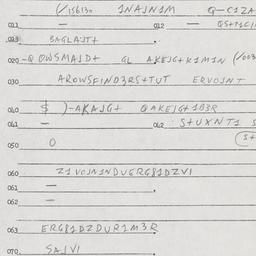 (/156130 1NAJN1M Q-C1ZA
011 — 012 — QS+M1C/
013 3AGLAJT+
020 -Q OWSMAJD+ GL AKEJG+K1M1N (/003
030 AROWSFIND3RS+TUT ERVOJNT
040 $ )-AKAJG+ QAKEJG+103R
041 — 042 S+UXNT1 S
050 0 (S+
060 Z1VOJN1NDVERG81DZV1
061 —
062 —
063 ERG81DZDUR1M3R
070 SAJVI